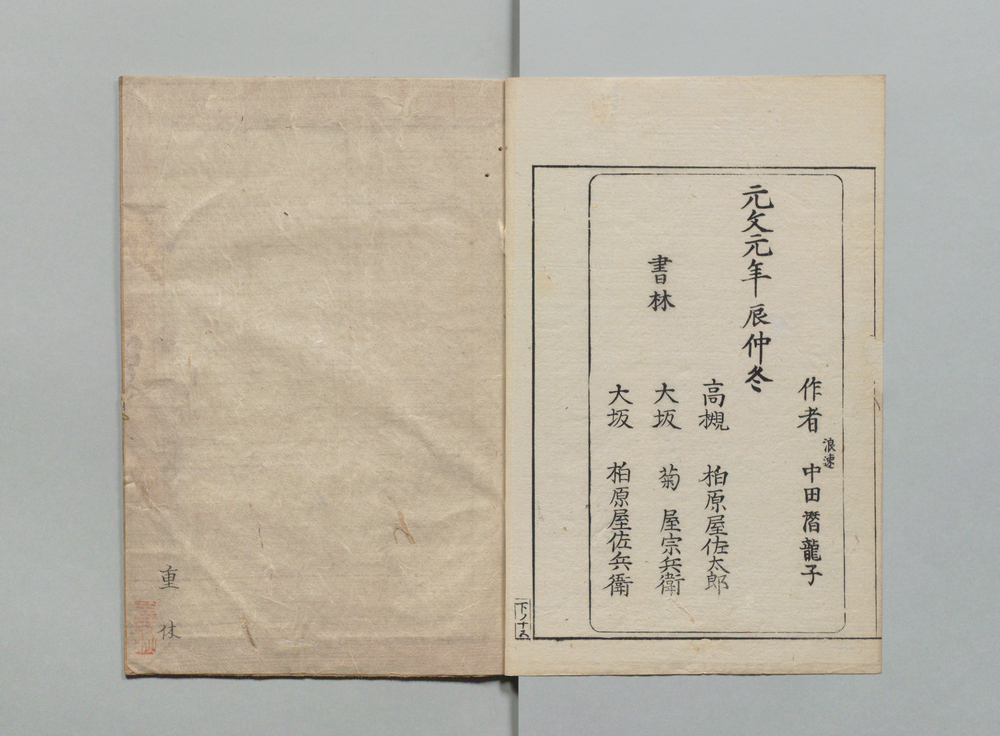 作者 浪速 中田潛龍子
元文元年 辰仲冬
高槻 柏原屋佐太郎
書林 大坂 菊屋宗兵衛
大坂 柏原屋佐兵衛
下ノ十五
重